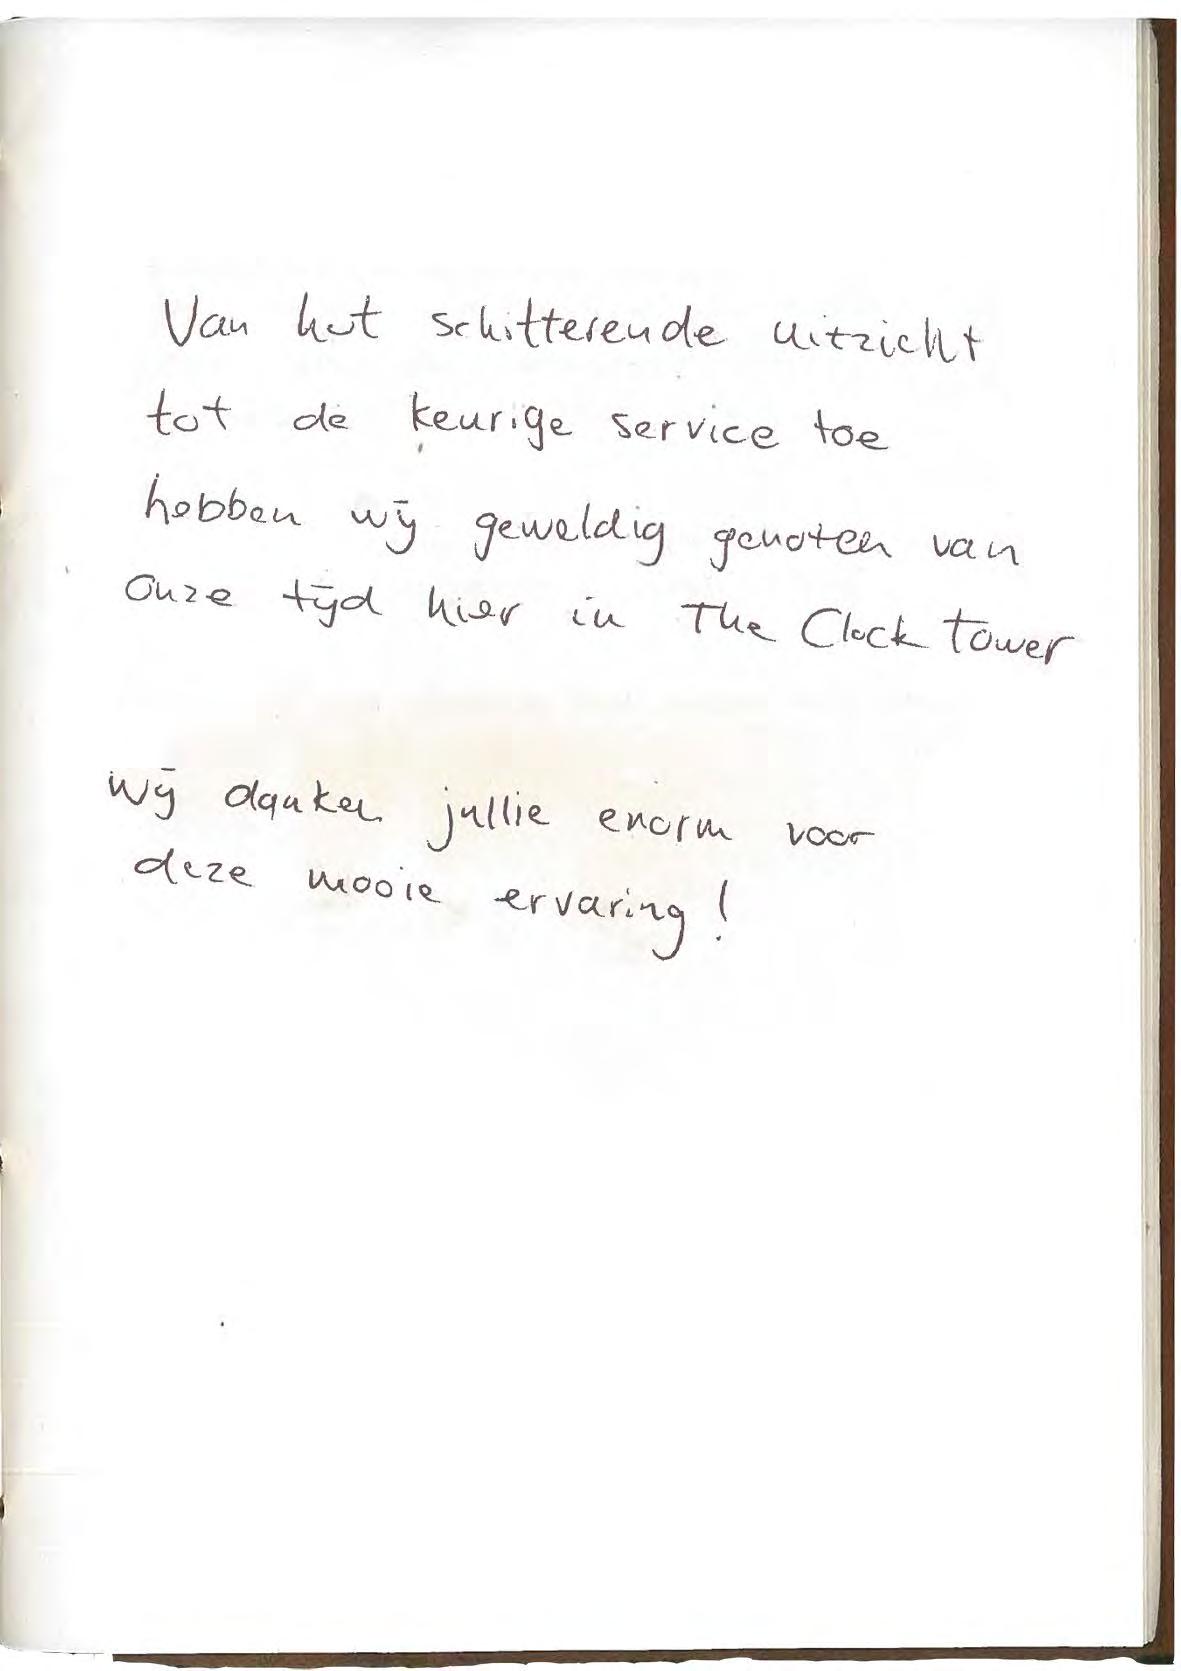 Van het schitterende uitzicht
tot de keurige service toe
hebben wij geweldig genoten van
onze tijd hier in The Clock Tower
Wij danken jullie enorm voor
deze mooie ervaring!